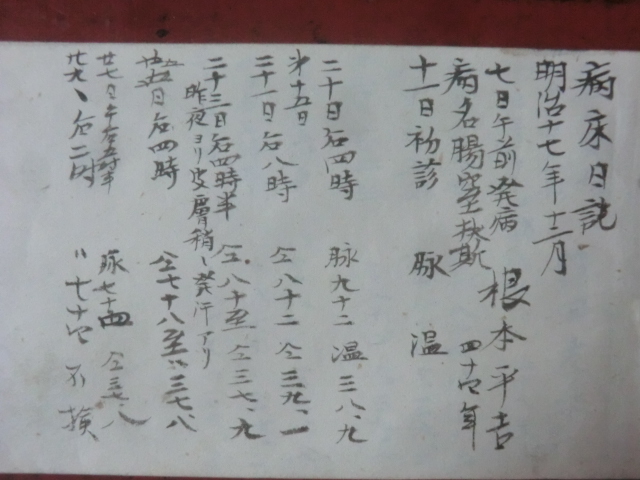 病床日記
明治十七年十二月
七日午前発病 根本平吉
病名腸窒扶斯 四十六年
十一日初診 脉 温
二十日后四時 脉九十二 温三八、九
才十五日
二十一日后八時 仝八十二 仝三九、一
二十三日后四時半 仝八十至 仝三七、九
昨夜ヨリ皮層稍々発汗アリ
五日后四時 仝七十八至 〃三七、八
廿七日 脉七十四 仝三七、八
廿九、后二時 〃七十 不検